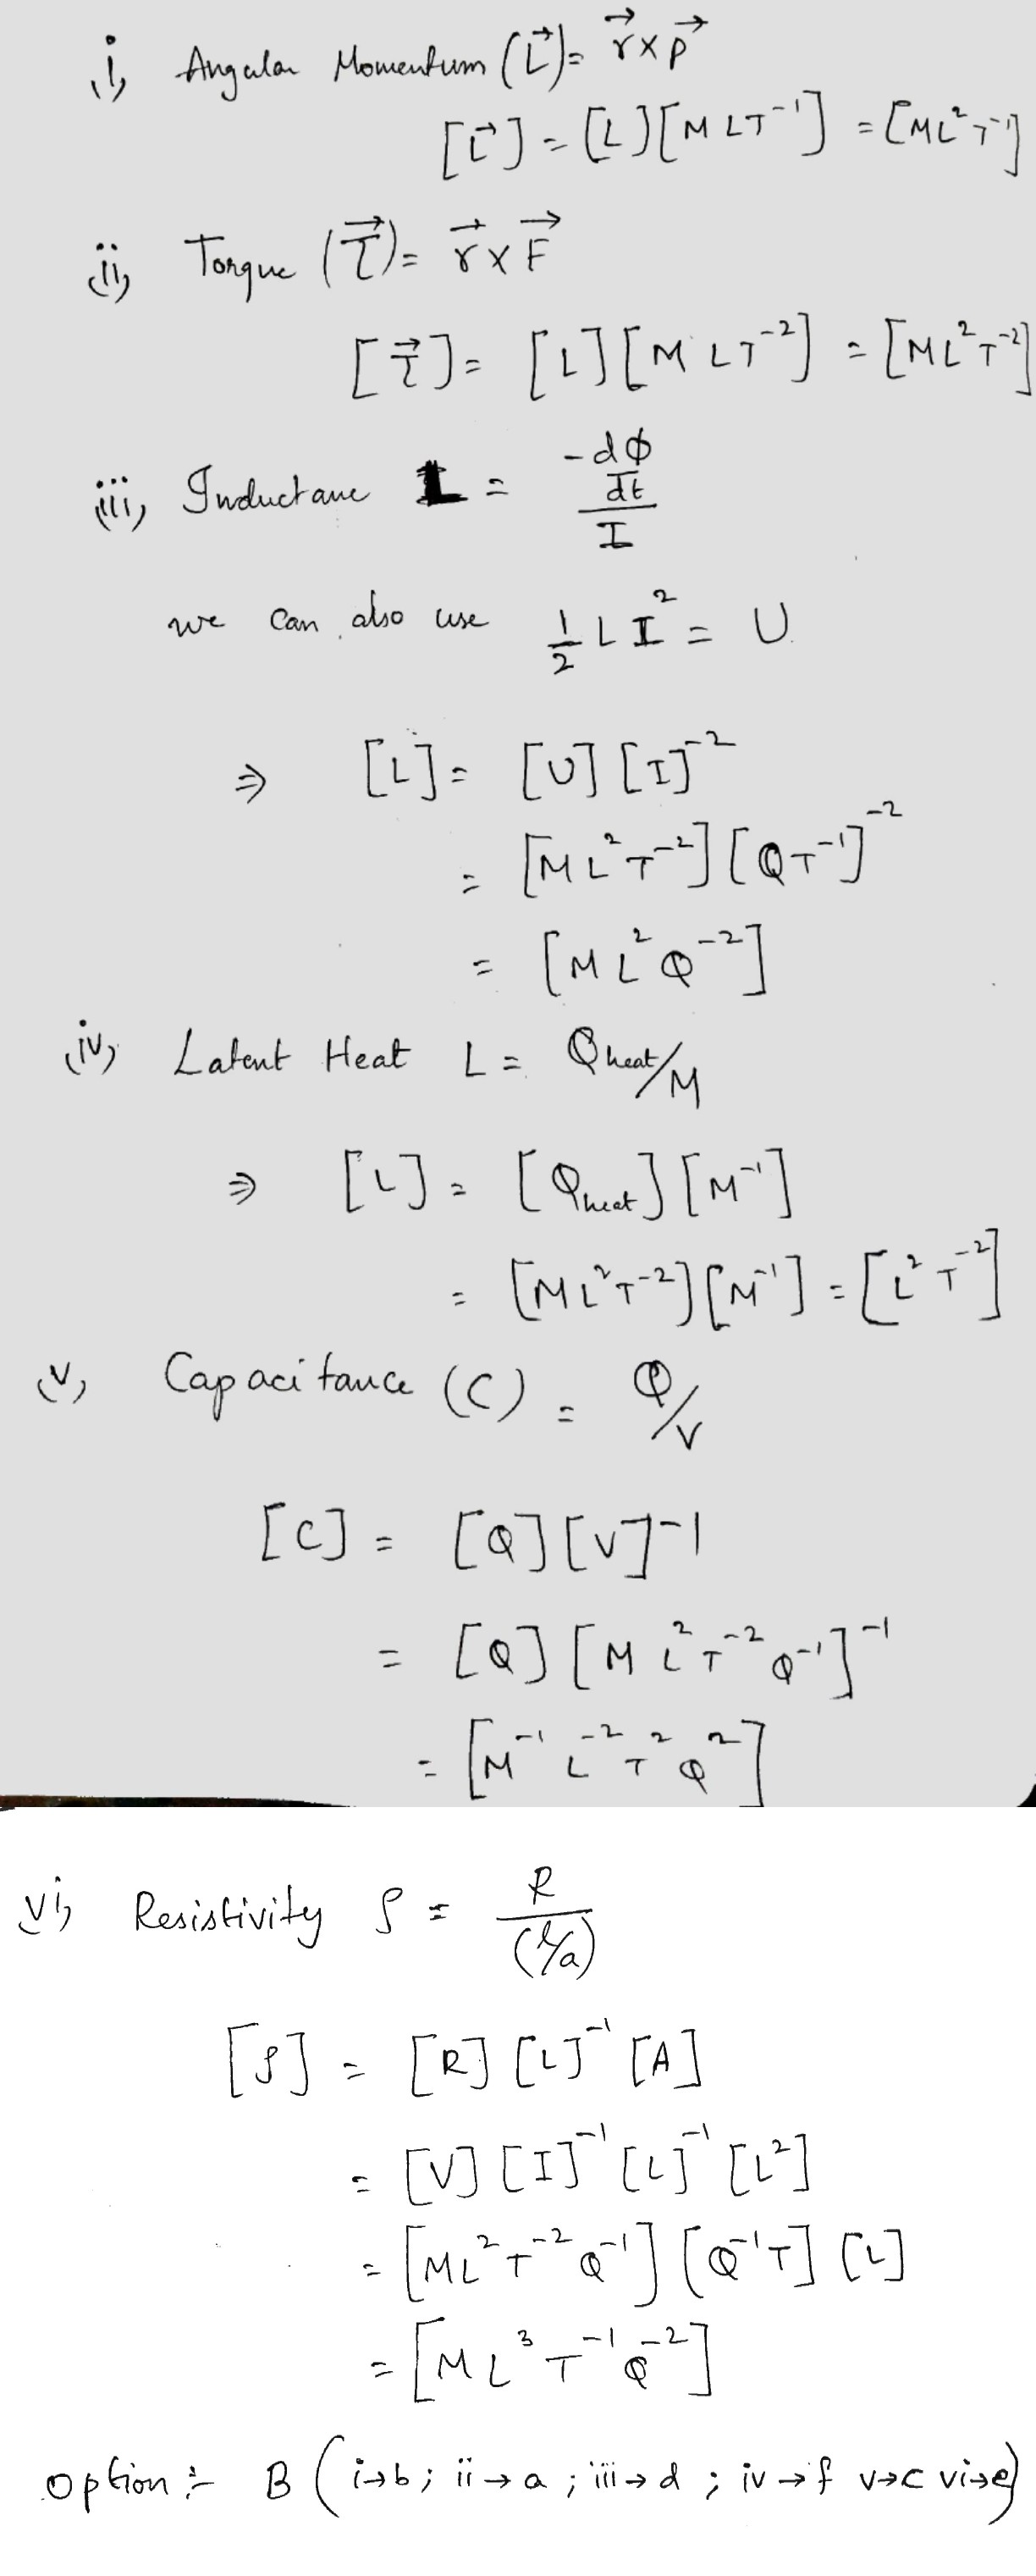 i, Angular Momentum (L⃗) = r⃗ x p⃗
[L⃗] = [L][M L T⁻¹] = [ML²T⁻¹]
ii, Torque (τ⃗) = r⃗ x F⃗
[τ⃗] = [L][M L T⁻²] = [ML²T⁻²]
iii, Inductance L = (-dϕ/dt)/I
we can also use 1/2 L I² = U
⇒ [L] = [U] [I]⁻²
= [M L² T⁻²] [Q T⁻¹]⁻²
= [M L² Q⁻²]
iv, Latent Heat L = Qheat/M
⇒ [L] = [Qheat] [M⁻¹]
= [M L² T⁻²] [M⁻¹] = [L² T⁻²]
v, Capacitance (C) = Q/V
[C] = [Q] [V]⁻¹
= [Q] [M L² T⁻² Q⁻¹]⁻¹
= [M⁻¹ L⁻² T² Q²]
vi, Resistivity ρ = R/(l/a)
[ρ] = [R] [L]⁻¹ [A]
= [V] [I]⁻¹ [L]⁻¹ [L²]
= [M L² T⁻² Q⁻¹] [Q⁻¹ T] [L]
= [M L³ T⁻¹ Q⁻²]
Option :- B (i→b; ii→a; iii→d; iv→f v→c vi→e)